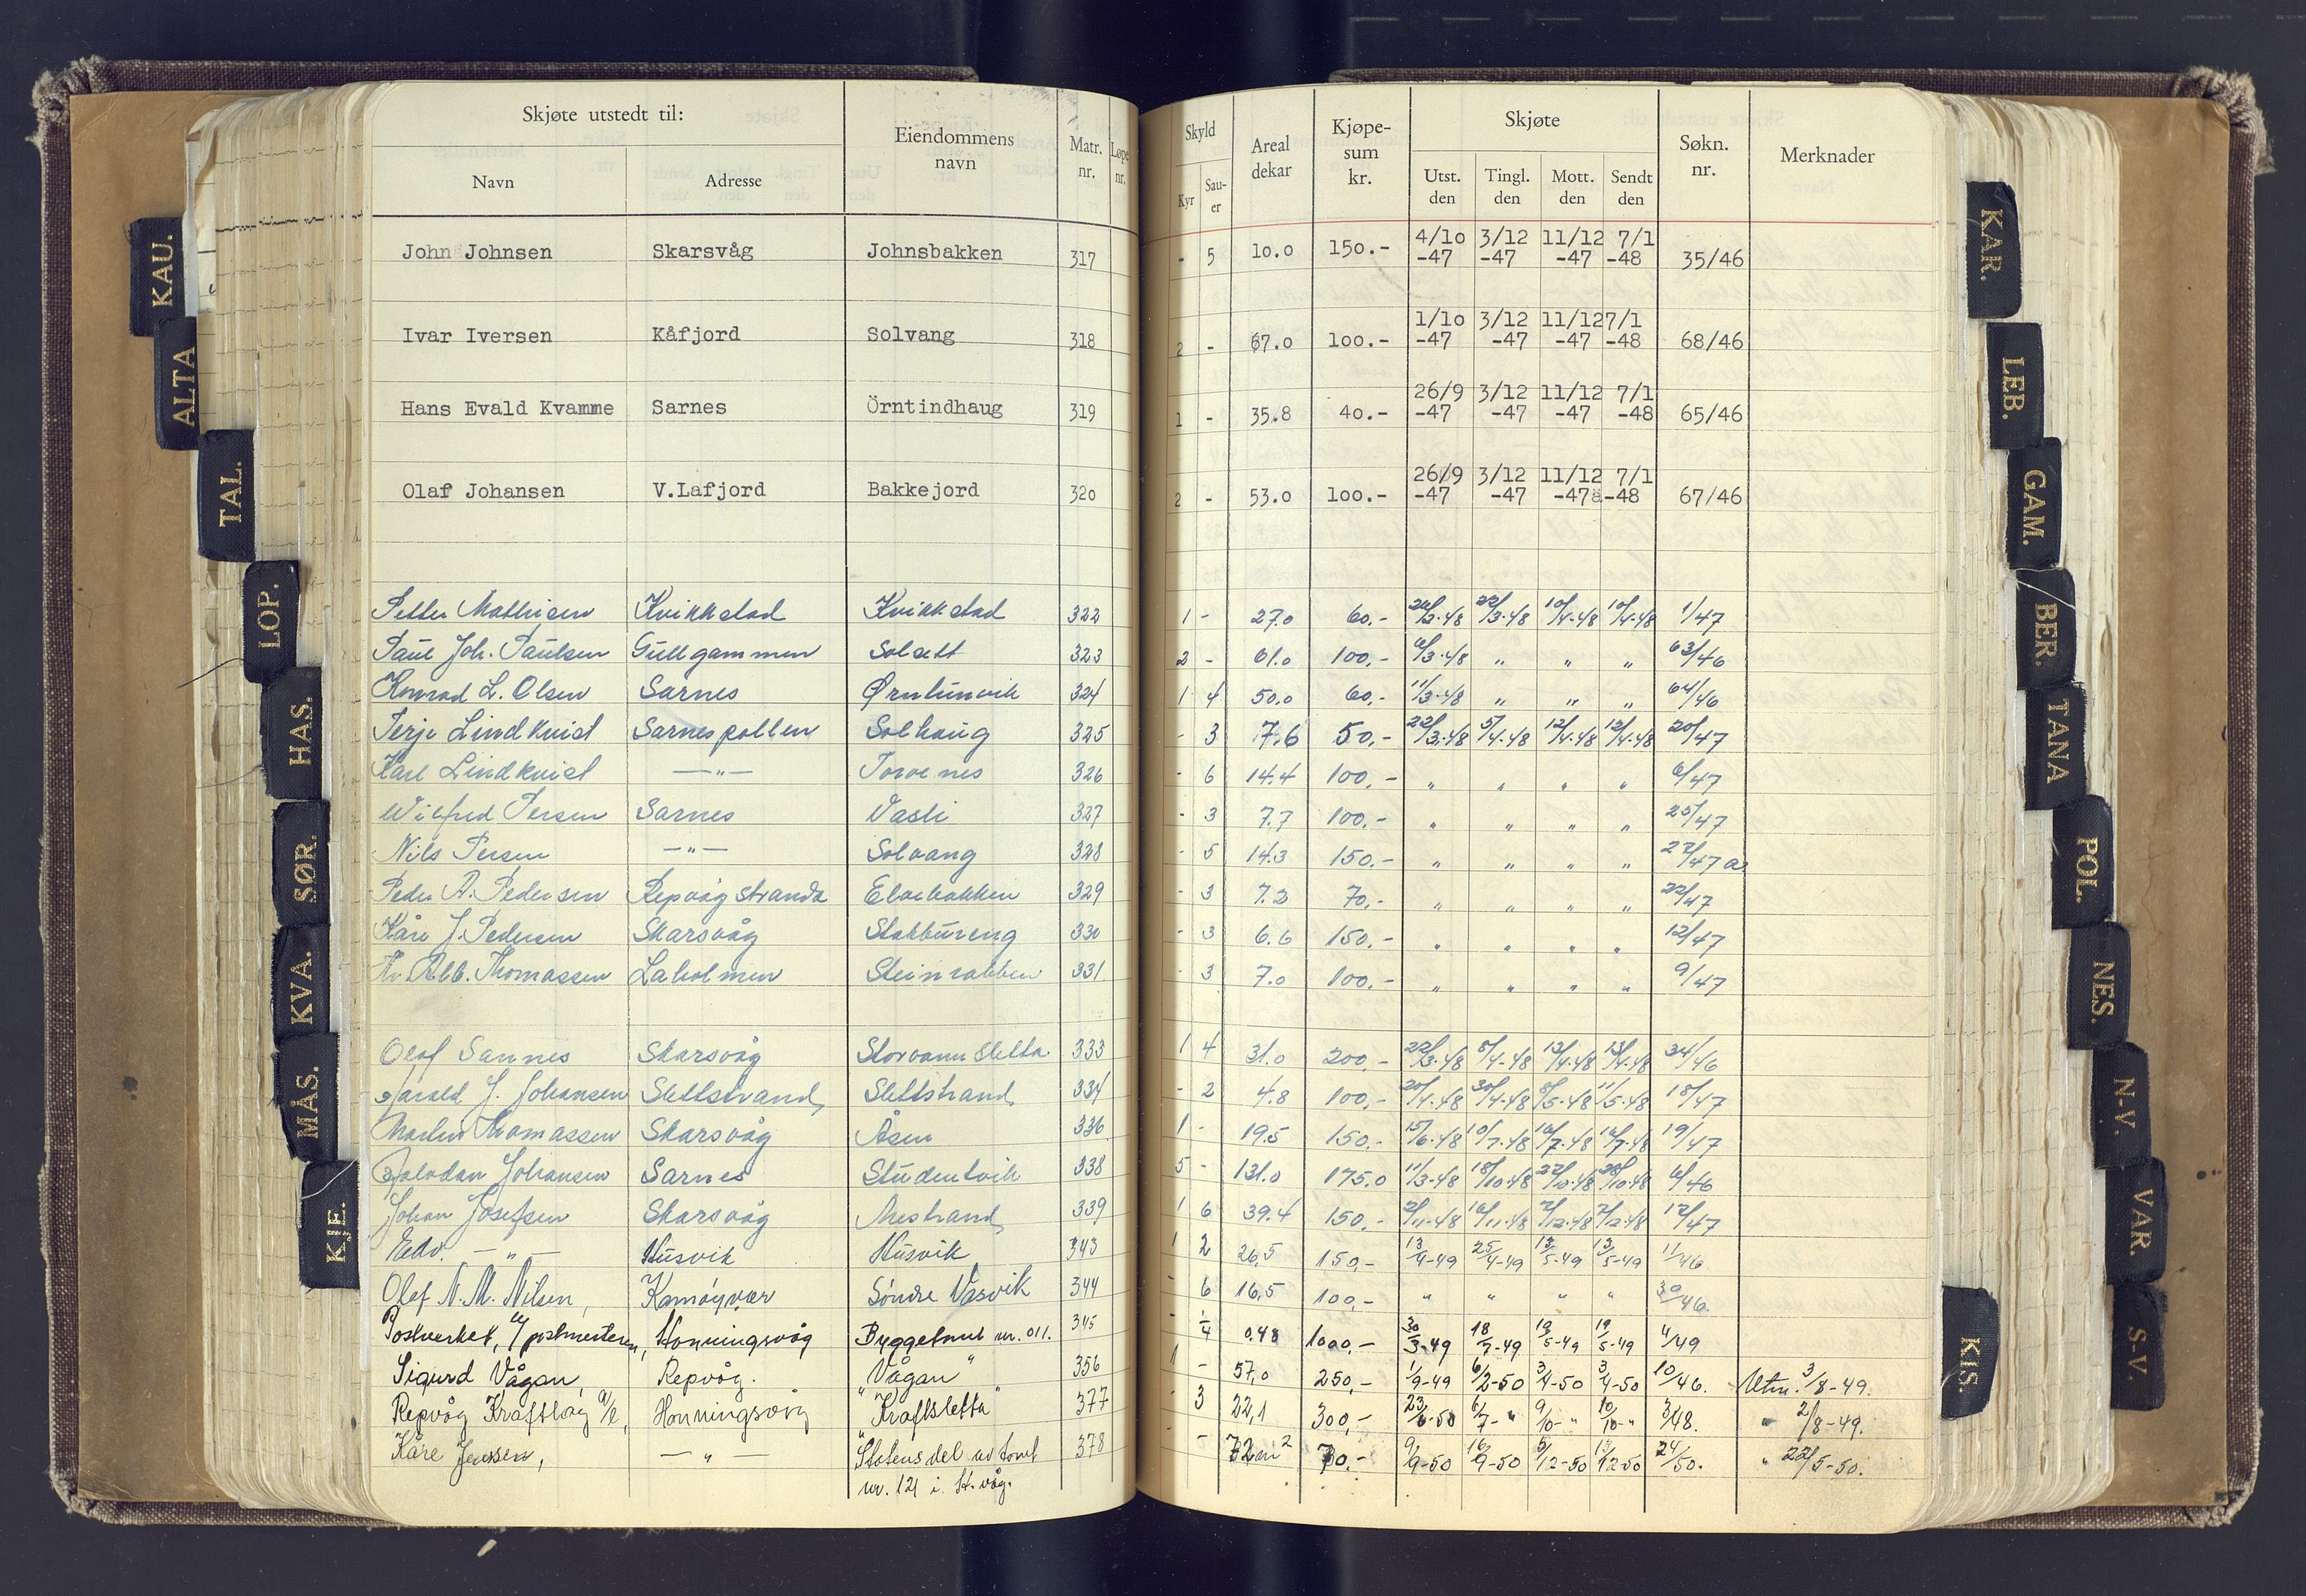 Skjøte utstedt til:
Navn
Adresse
Eiendommens navn
Matr. nr.
Løpe nr.
Skyld
Kyr
Sau-er
Areal dekar
Kjøpe-sum kr.
Skjøte
Utst. den
Tingl. den
Mott. den
Sendt den
Søkn. nr.
Merknader
John Johnsen Skarsvåg Johnsbakken 317 - 5 10.0 150.- 4/10 -47 3/12 -47 11/12 -47 7/1 -48 35/46
Ivar Iversen Kåfjord Solvang 318 2 - 67.0 100.- 1/10 -47 3/12 -47 11/12 -47 7/1 -48 68/46
Hans Evald Kvamme Sarnes Örntindhaug 319 1 - 35.8 40.- 26/9 -47 3/12 -47 11/12 -47 7/1 -48 65/46
Olaf Johansen V.Lafjord Bakkejord 320 2 - 53.0 100.- 26/9 -47 3/12 -47 11/12 -47 7/1 -48 67/46
Petter Mathisen Kvikkstad Kvikkstad 322 1 - 27.0 60.- 22/3-48 10/4-48 10/4-48 1/47
Paul Joh. Paulsen Gullgammen Solsett 323 2 - 61.0 100,- 6/3-48 " " " 63/46
Konrad L. Olsen Sarnes 324 1 4 50.0 60,- 11/3-48 " " " 64/46
Terje Lindkvist Sarnespollen Solhaug 325 - 3 7.6 50,- 22/3-48 5/4-48 12/4-48 12/4-48 20/47
Karl Lindkvist — " — Torvenes 326 - 6 14.4 100,- " " " " 6/47
Wilfred Persen Sarnes Vasli 327 - 3 7.7 100.- " " " " 25/47
Nils Persen — " — Solvang 328 - 5 14.3 150,- " " " " 27/47 a
Peder A. Pedersen Repvågstranda Elvebakken 329 - 3 7.2 70,- " " " " 22/47
Kåre J. Pedersen Skarsvåg Stabbureng 330 - 3 6.6 150,- " " " " 12/47
Alb. Thomassen Laholmen Steinrabben 331 - 3 7.0 100,- " " " " 9/47
Olaf Sannes Skarsvåg Storvannsletta 333 1 4 31.0 200,- 22/3-48 5/4-48 13/4-48 13/4-48 34/46
Harald J. Johansen Slettstrand Slettstrand 334 - 2 4.8 100,- 20/4-48 30/4-48 8/5-48 11/5-48 18/47
Martin Thomassen Skarsvåg Åsen 336 1 - 19.5 150,- 15/6-48 10/7-48 16/7-48 16/7-48 19/47
Halvdan Johansen Sarnes Studentvik 338 5 - 131.0 175.0 11/3-48 18/10-48 6/46
Johan Josefsen Skarsvåg 339 1 6 39.4 150,- 2/11-48 16/11-48 2/12-48 2/12-48 17/47
Edv. — " — Husvik Husvik 343 1 2 26,5 150,- 13/4-49 25/4-49 13/5-49 13/5-49 11/46
Olaf N. M. Nilsen, Kamøyvær Söndre Vasvik 344 - 6 16,5 100,- " " " " 30/46.
Postverket, v/postmesteren, Honningsvåg Byggetomt nr. 011. 345 - 1/4 0.48 1000,- 30/3-49 4/49
Sigurd Vågan, Repvåg. "Vågan" 356 1 - 57,0 250,- 1/9-49 6/2-50 3/4-50 3/4-50 10/46. Utm. 3/8-49.
Repvåg Kraftlag A/L, Honningsvåg "Kraftsletta" 377 - 3 22,1 300,- 23/6-50 6/7- " 9/10- " 10/10- " 3/48. " 2/8-49.
Kåre Jenssen, — " — Statens del av tomt 378 - - 72 m² 70.- 9/9-50 16/9-50 5/12-50 13/12-50 24/50. " 22/5-50.
nr. 121 i H.våg.
KAU.
ALTA
TAL.
LOP.
HAS.
SØR.
KVA.
MÅS.
KJE.
KAR.
LEB.
GAM.
BER.
TANA
POL.
NES.
N-V.
VAR.
S-V.
KIS.